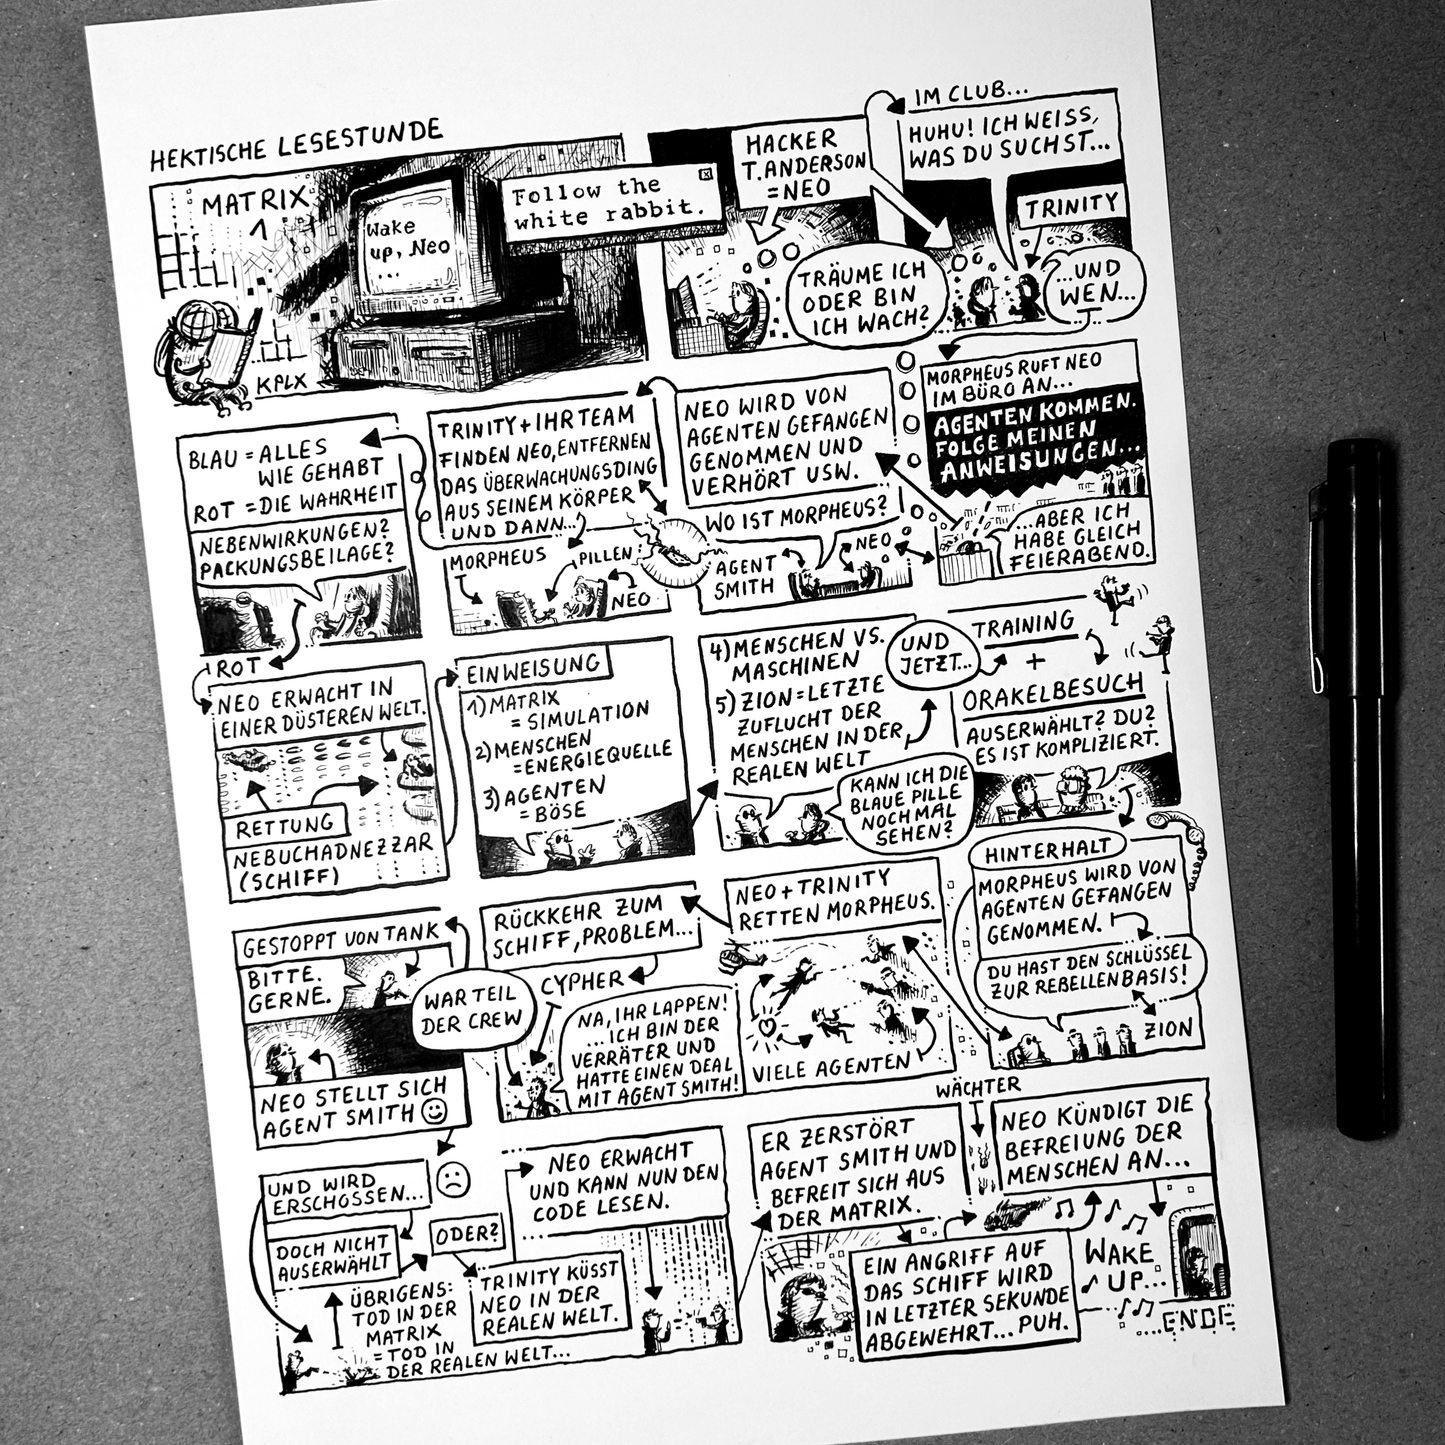 HEKTISCHE LESESTUNDE
MATRIX
1
KPLX
Wake
up, Neo
...
Follow the
white rabbit.
HACKER
T. ANDERSON
= NEO
TRÄUME ICH
ODER BIN
ICH WACH?
IM CLUB...
HUHU! ICH WEISS,
WAS DU SUCHST...
TRINITY
...UND
WEN...
MORPHEUS RUFT NEO
IM BÜRO AN...
AGENTEN KOMMEN.
FOLGE MEINEN
ANWEISUNGEN...
...ABER ICH
HABE GLEICH
FEIERABEND.
NEO WIRD VON
AGENTEN GEFANGEN
GENOMMEN UND
VERHÖRT USW.
WO IST MORPHEUS?
AGENT
SMITH
NEO
TRINITY + IHR TEAM
FINDEN NEO, ENTFERNEN
DAS ÜBERWACHUNGSDING
AUS SEINEM KÖRPER
UND DANN...
MORPHEUS
PILLEN
NEO
BLAU = ALLES
WIE GEHABT
ROT = DIE WAHRHEIT
NEBENWIRKUNGEN?
PACKUNGSBEILAGE?
ROT
NEO ERWACHT IN
EINER DÜSTEREN WELT.
RETTUNG
NEBUCHADNEZZAR
(SCHIFF)
EINWEISUNG
1) MATRIX
= SIMULATION
2) MENSCHEN
= ENERGIEQUELLE
3) AGENTEN
= BÖSE
4) MENSCHEN VS.
MASCHINEN
5) ZION = LETZTE
ZUFLUCHT DER
MENSCHEN IN DER
REALEN WELT
KANN ICH DIE
BLAUE PILLE
NOCH MAL
SEHEN?
UND
JETZT...
TRAINING
+
ORAKELBESUCH
AUSERWÄHLT? DU?
ES IST KOMPLIZIERT.
HINTERHALT
MORPHEUS WIRD VON
AGENTEN GEFANGEN
GENOMMEN.
DU HAST DEN SCHLÜSSEL
ZUR REBELLENBASIS!
ZION
NEO + TRINITY
RETTEN MORPHEUS.
VIELE AGENTEN
RÜCKKEHR ZUM
SCHIFF, PROBLEM...
CYPHER
WAR TEIL
DER CREW
NA, IHR LAPPEN!
...ICH BIN DER
VERRÄTER UND
HATTE EINEN DEAL
MIT AGENT SMITH!
GESTOPPT VON TANK
BITTE.
GERNE.
NEO STELLT SICH
AGENT SMITH
UND WIRD
ERSCHOSSEN...
DOCH NICHT
AUSERWÄHLT
ÜBRIGENS:
TOD IN DER
MATRIX
= TOD IN
DER REALEN WELT...
ODER?
TRINITY KÜSST
NEO IN DER
REALEN WELT.
NEO ERWACHT
UND KANN NUN DEN
CODE LESEN.
ER ZERSTÖRT
AGENT SMITH UND
BEFREIT SICH AUS
DER MATRIX.
WÄCHTER
EIN ANGRIFF AUF
DAS SCHIFF WIRD
IN LETZTER SEKUNDE
ABGEWEHRT... PUH.
NEO KÜNDIGT DIE
BEFREIUNG DER
MENSCHEN AN...
WAKE
UP...
...ENDE